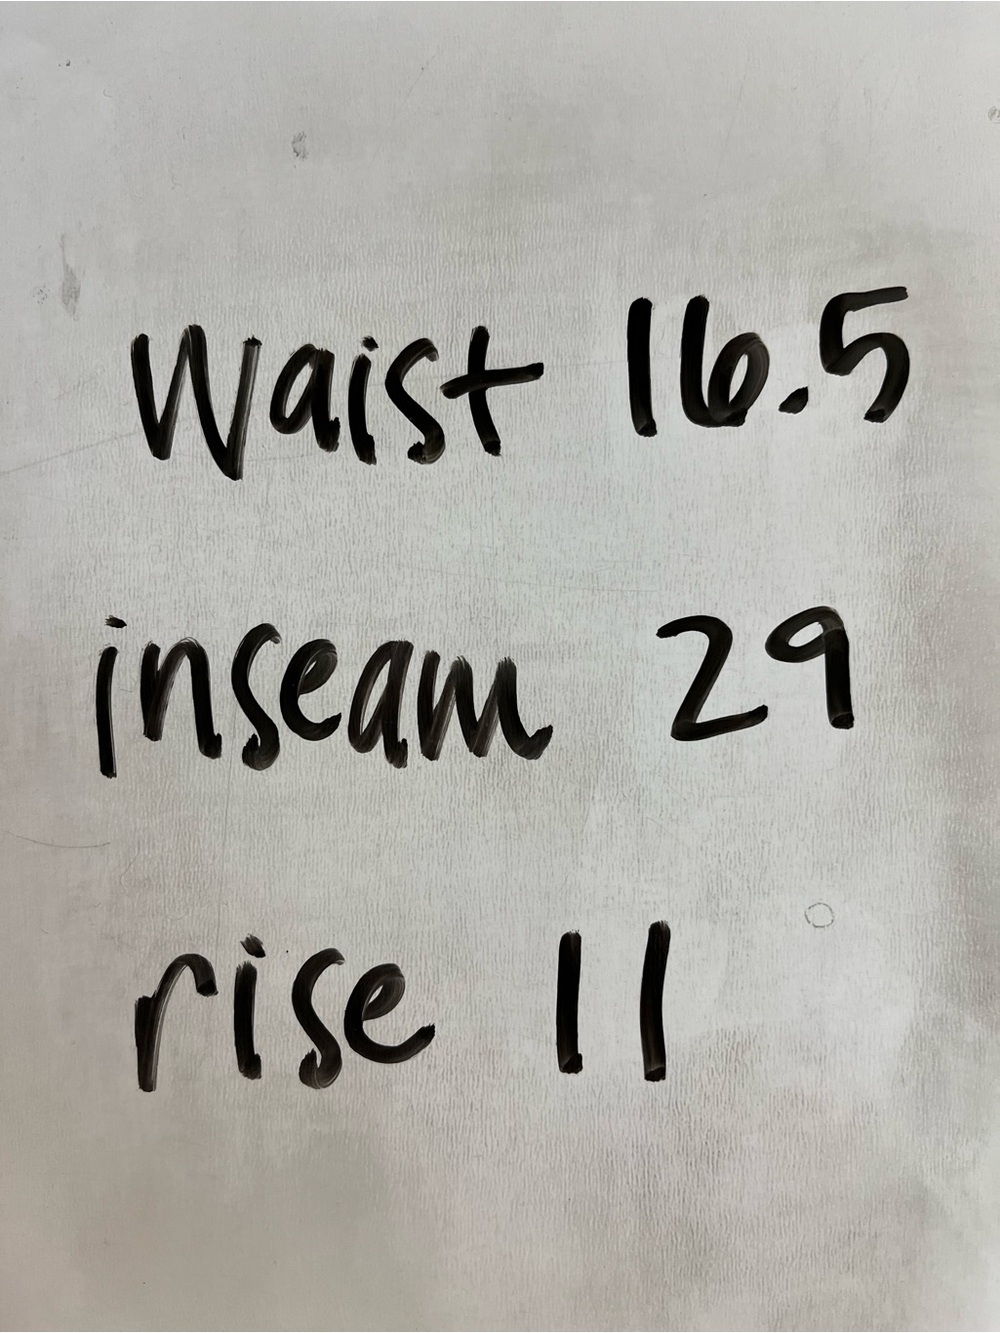 Waist 16.5
inseam 29
rise 11